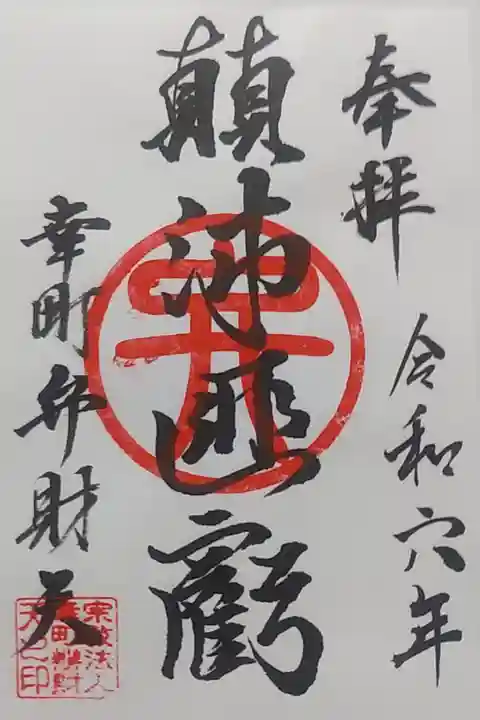 奉拝 令和六年
顛沛匪虧
幸町弁財天
宗教法人
幸町辨財
天之印